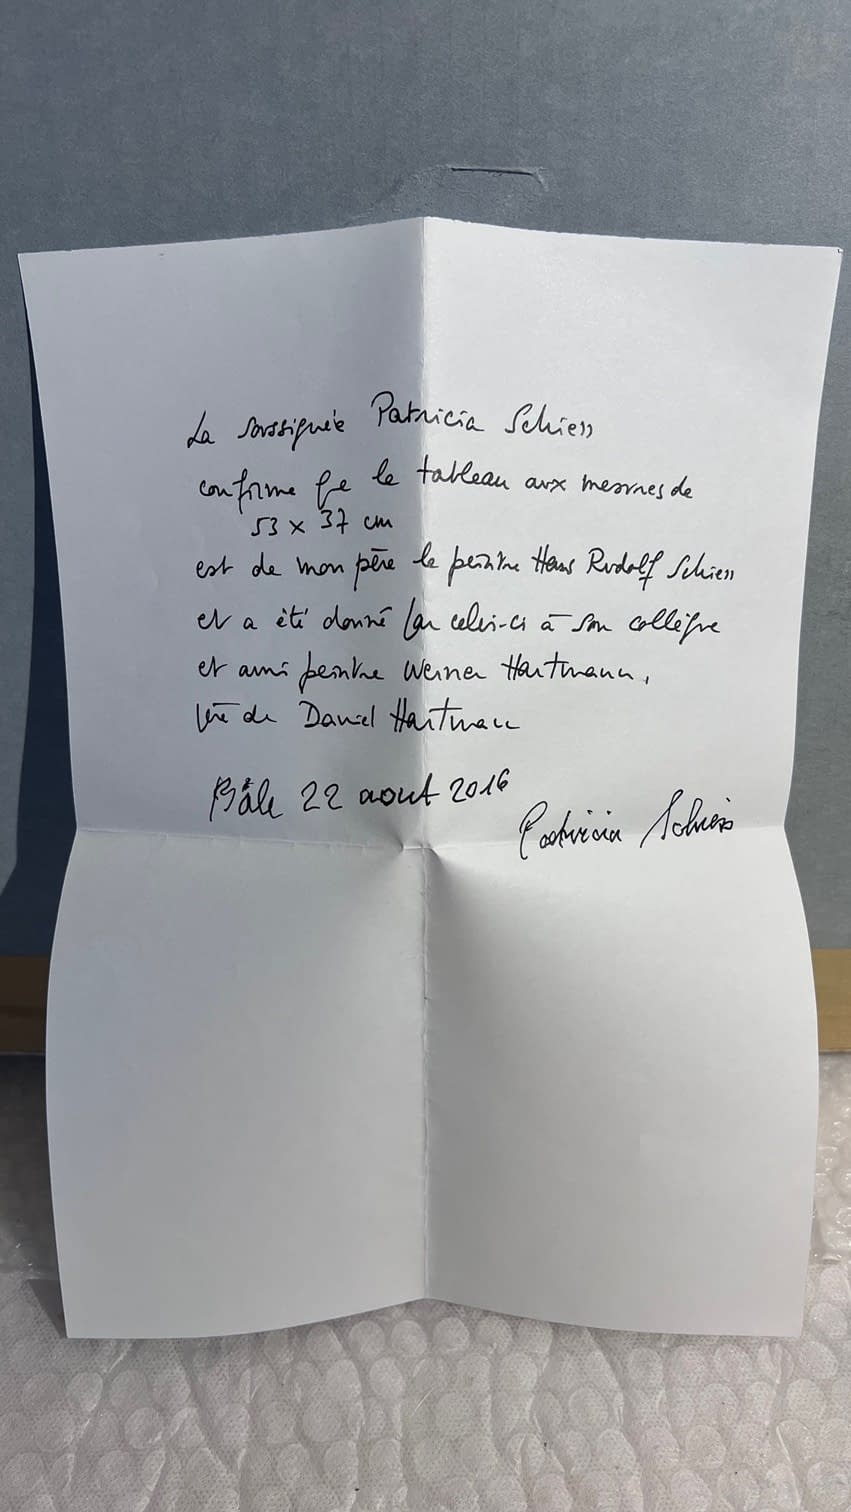 La soussignée Patricia Schiess
conforme que le tableau aux mesures de
53 x 37 cm
est de mon père le peintre Hans Rudolf Schiess
et a été donné par celui-ci à son collègue
et ami peintre Werner Hartmann,
père de Daniel Hartmann
Bâle 22 aout 2016
Patricia Schiess